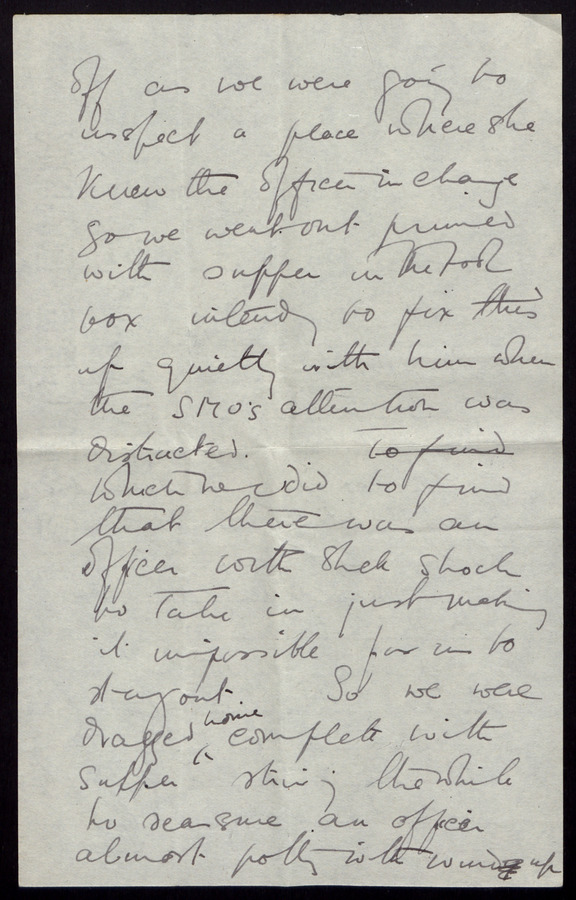 off as we were going to
inspect a place where she
knew the officer in charge
so we went out primed
with supper in the tool
box intending to fix this
up quietly with him when
the SMO's attention was
distracted. To find
which we did to find
that there was an
officer with shell shock
to take in just making
it impossible for us to
stay out. So we were
dragged home complete with
supper striving the while
to reassure an officer
almost potty with wind up